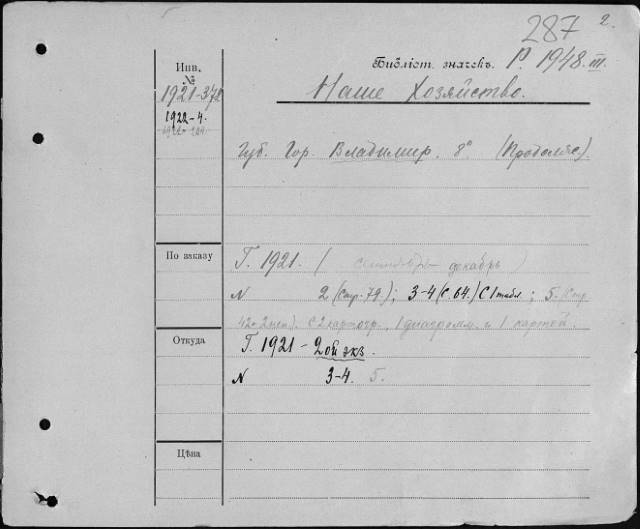 287 2.
Инв.
№
Библіот. значекъ. P. 1948. III.
1921-372
Наше Хозяйство.
1922-4.
Губ. Гор. Владимир. 8°
По заказу
Г. 1921. ( сентябрь- декабрь )
N 2 (Стр. 79.); 3-4 (С. 64.) С 1 табл.; 5. (Стр
42+2 нен). с 2 картогр., 1 диаграмм. и 1 картой.
Откуда
Г. 1921 - 2ой экз.
N 3-4. 5.
Цѣна